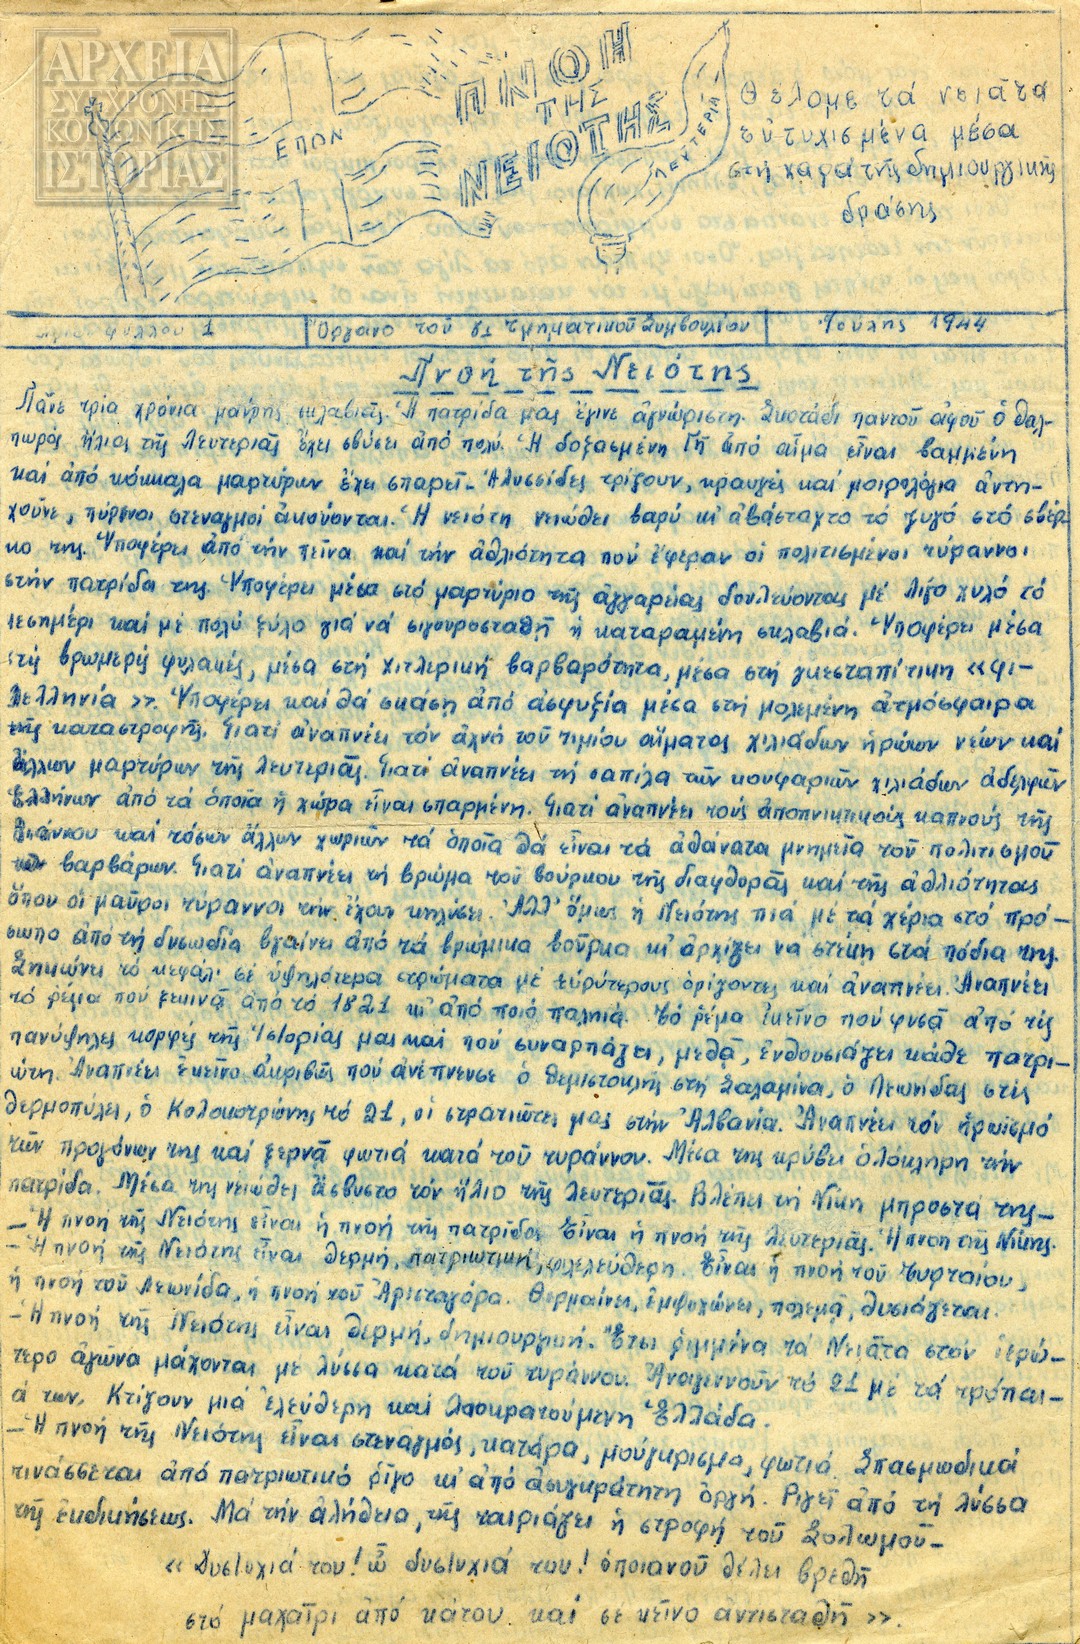 ΑΡΧΕΙΑ
ΣΥΓΧΡΟΝΗΣ
ΚΟΙΝΩΝΙΚΗΣ
ΙΣΤΟΡΙΑΣ
ΕΠΟΝ
ΠΝΟΗ
ΤΗΣ
ΝΕΙΟΤΗΣ
ΛΕΥΤΕΡΙΑ
Θέλομε τά νειᾶτα
εὐτυχισμένα μέσα
στή χαρά τῆς δημιουργικῆς
δράσης
φύλλου 1
Ὄργανο τοῦ γ1 τμηματικοῦ Συμβουλίου
Ἰούλης 1944
Πνοή τῆς Νειότης
Πᾶνε τρία χρόνια μαύρης σκλαβιᾶς. Ἡ πατρίδα μας ἔγινε ἀγνώριστη. Σκοτάδι παντοῦ ἀφοῦ ὁ θαλ-
πωρός ἥλιος τῆς λευτεριᾶς ἔχει σβύσει ἀπό πολύ. Ἡ δοξασμένη Γῆ ἀπό αἷμα εἶναι βαμμένη
καί ἀπό κόκκαλα μαρτύρων ἔχει σπαρεῖ - Ἁλυσσίδες τρίζουν, κραυγές καί μοιρολόγια ἀντη-
χοῦνε, πύρινοι στεναγμοί ἀκούονται. Ἡ νειότη νειώθει βαρύ κι' ἀβάσταχτο τό ζυγό στό σβέρ-
κο της. Ὑποφέρει ἀπό τήν πεῖνα καί τήν ἀθλιότητα πού ἔφεραν οἱ πολιτισμένοι τύραννοι
στήν πατρίδα της Ὑποφέρει μέσα στό μαρτύριο τῆς ἀγγαρείας δουλεύοντας μέ λίγο χυλό τό
μεσημέρι καί μέ πολύ ξύλο γιά νά σιγουροσταθῇ ἡ καταραμένη σκλαβιά. Ὑποφέρει μέσα
στίς βρωμερές φυλακές, μέσα στή χιτλερική βαρβαρότητα, μέσα στή γκεσταπίτικη «φι-
λελληνία». Ὑποφέρει καί θά σκάσῃ ἀπό ἀσφυξία μέσα στή μολεμένη ἀτμόσφαιρα
τῆς καταστροφῆς. Γιατί ἀναπνέει τόν ἀχνό τοῦ τιμίου αἵματος χιλιάδων ἡρώων νέων καί
ἄλλων μαρτύρων τῆς λευτεριᾶς. Γιατί ἀναπνέει τή σαπίλα τῶν κουφαριῶν χιλιάδων ἀδελφῶν
Ἑλλήνων ἀπό τά ὁποῖα ἡ χώρα εἶναι σπαρμένη. Γιατί ἀναπνέει τούς ἀποπνικτικούς καπνούς τῆς
Βιάννου καί τόσων ἄλλων χωριῶν τά ὁποῖα θά εἶναι τά ἀθάνατα μνημεῖα τοῦ πολιτισμοῦ
τῶν βαρβάρων. Γιατί ἀναπνέει τή βρῶμα τοῦ βούρκου τῆς διαφθορᾶς καί τῆς ἀθλιότητας
ὅπου οἱ μαῦροι τύραννοι τήν ἔχουν κυλίσει. Ἀλλ' ὅμως ἡ Νειότης πιά μέ τά χέρια στό πρό-
σωπο ἀπό τή δυσωδία βγαίνει ἀπό τά βρώμικα βοῦρκα κι' ἀρχίζει να στέκη στά πόδια της.
Σηκώνει τό κεφάλι σέ ὑψηλότερα στρώματα μέ εὐρύτερους ὁρίζοντες καί ἀναπνέει. Ἀναπνέει
τό ρέμα πού ξεκινᾶ ἀπό τό 1821 κι' ἀπό πιό παληά. Τό ρέμα ἐκεῖνο πού φυσᾶ ἀπό τίς
πανύψηλες κορφές τῆς Ἱστορίας μας καί πού συναρπάζει, μεθᾶ, ἐνθουσιάζει κάθε πατρι-
ώτη. Ἀναπνέει ἐκεῖνο ἀκριβῶς πού ἀνέπνευσε ὁ Θεμιστοκλῆς στή Σαλαμίνα, ὁ Λεωνίδας στίς
Θερμοπύλες, ὁ Κολοκοτρώνης τό 21, οἱ στρατιῶτες μας στήν Ἀλβανία. Ἀναπνέει τόν ἡρωϊσμό
τῶν προγόνων της καί ξερνᾶ φωτιά κατά τοῦ τυράννου. Μέσα της κρύβει ὁλόκληρη τήν
πατρίδα. Μέσα της νειώθει ἄσβυστο τόν ἥλιο τῆς λευτεριᾶς. Βλέπει τή Νίκη μπροστά της -
- Ἡ πνοή τῆς Νειότης εἶναι ἡ πνοή τῆς πατρίδος Εἶναι ἡ πνοή τῆς λευτεριᾶς. Ἡ πνοη τῆς Νίκης.
- Ἡ πνοή τῆς Νειότης εἶναι θερμή, πατριωτική, φιλελεύθερη. Εἶναι ἡ πνοή τοῦ Τυρταίου,
ἡ πνοή τοῦ Λεωνίδα, ἡ πνοή τοῦ Ἀρισταγόρα. Θερμαίνει, ἐμψυχώνει, πολεμᾶ, θυσιάζεται.
- Ἡ πνοή τῆς Νειότης εἶναι θερμή, δημιουργική. Ἔτσι ριμμένα τά Νειᾶτα στον ἱερώ-
τερο ἀγῶνα μάχονται με λύσσα κατά τοῦ τυράννου. Ἀναγεννοῦν τό 21 μέ τά τρόπαι-
ά των. Κτίζουν μιά ἐλεύθερη καί λαοκρατούμενη Ἑλλάδα.
- Ἡ πνοή τῆς Νειότης εἶναι στεναγμός, κατάρα, μούγκρισμα, φωτιά. Σπασμωδικά
τινάσσεται ἀπό πατριωτικό ρῖγο κι' ἀπό ἀσυγκράτητη ὀργή. Ριγεῖ ἀπό τή λύσσα
τῆς ἐκδικήσεως. Μά τήν ἀλήθεια, τῆς ταιριάζει ἡ στροφή τοῦ Σολωμοῦ -
« Δυστυχιά του! ὦ δυστυχιά του! ὁποιανοῦ θέλει βρεθῆ
στό μαχαῖρι ἀπό κάτου καί σε κεῖνο ἀντισταθῆ ».